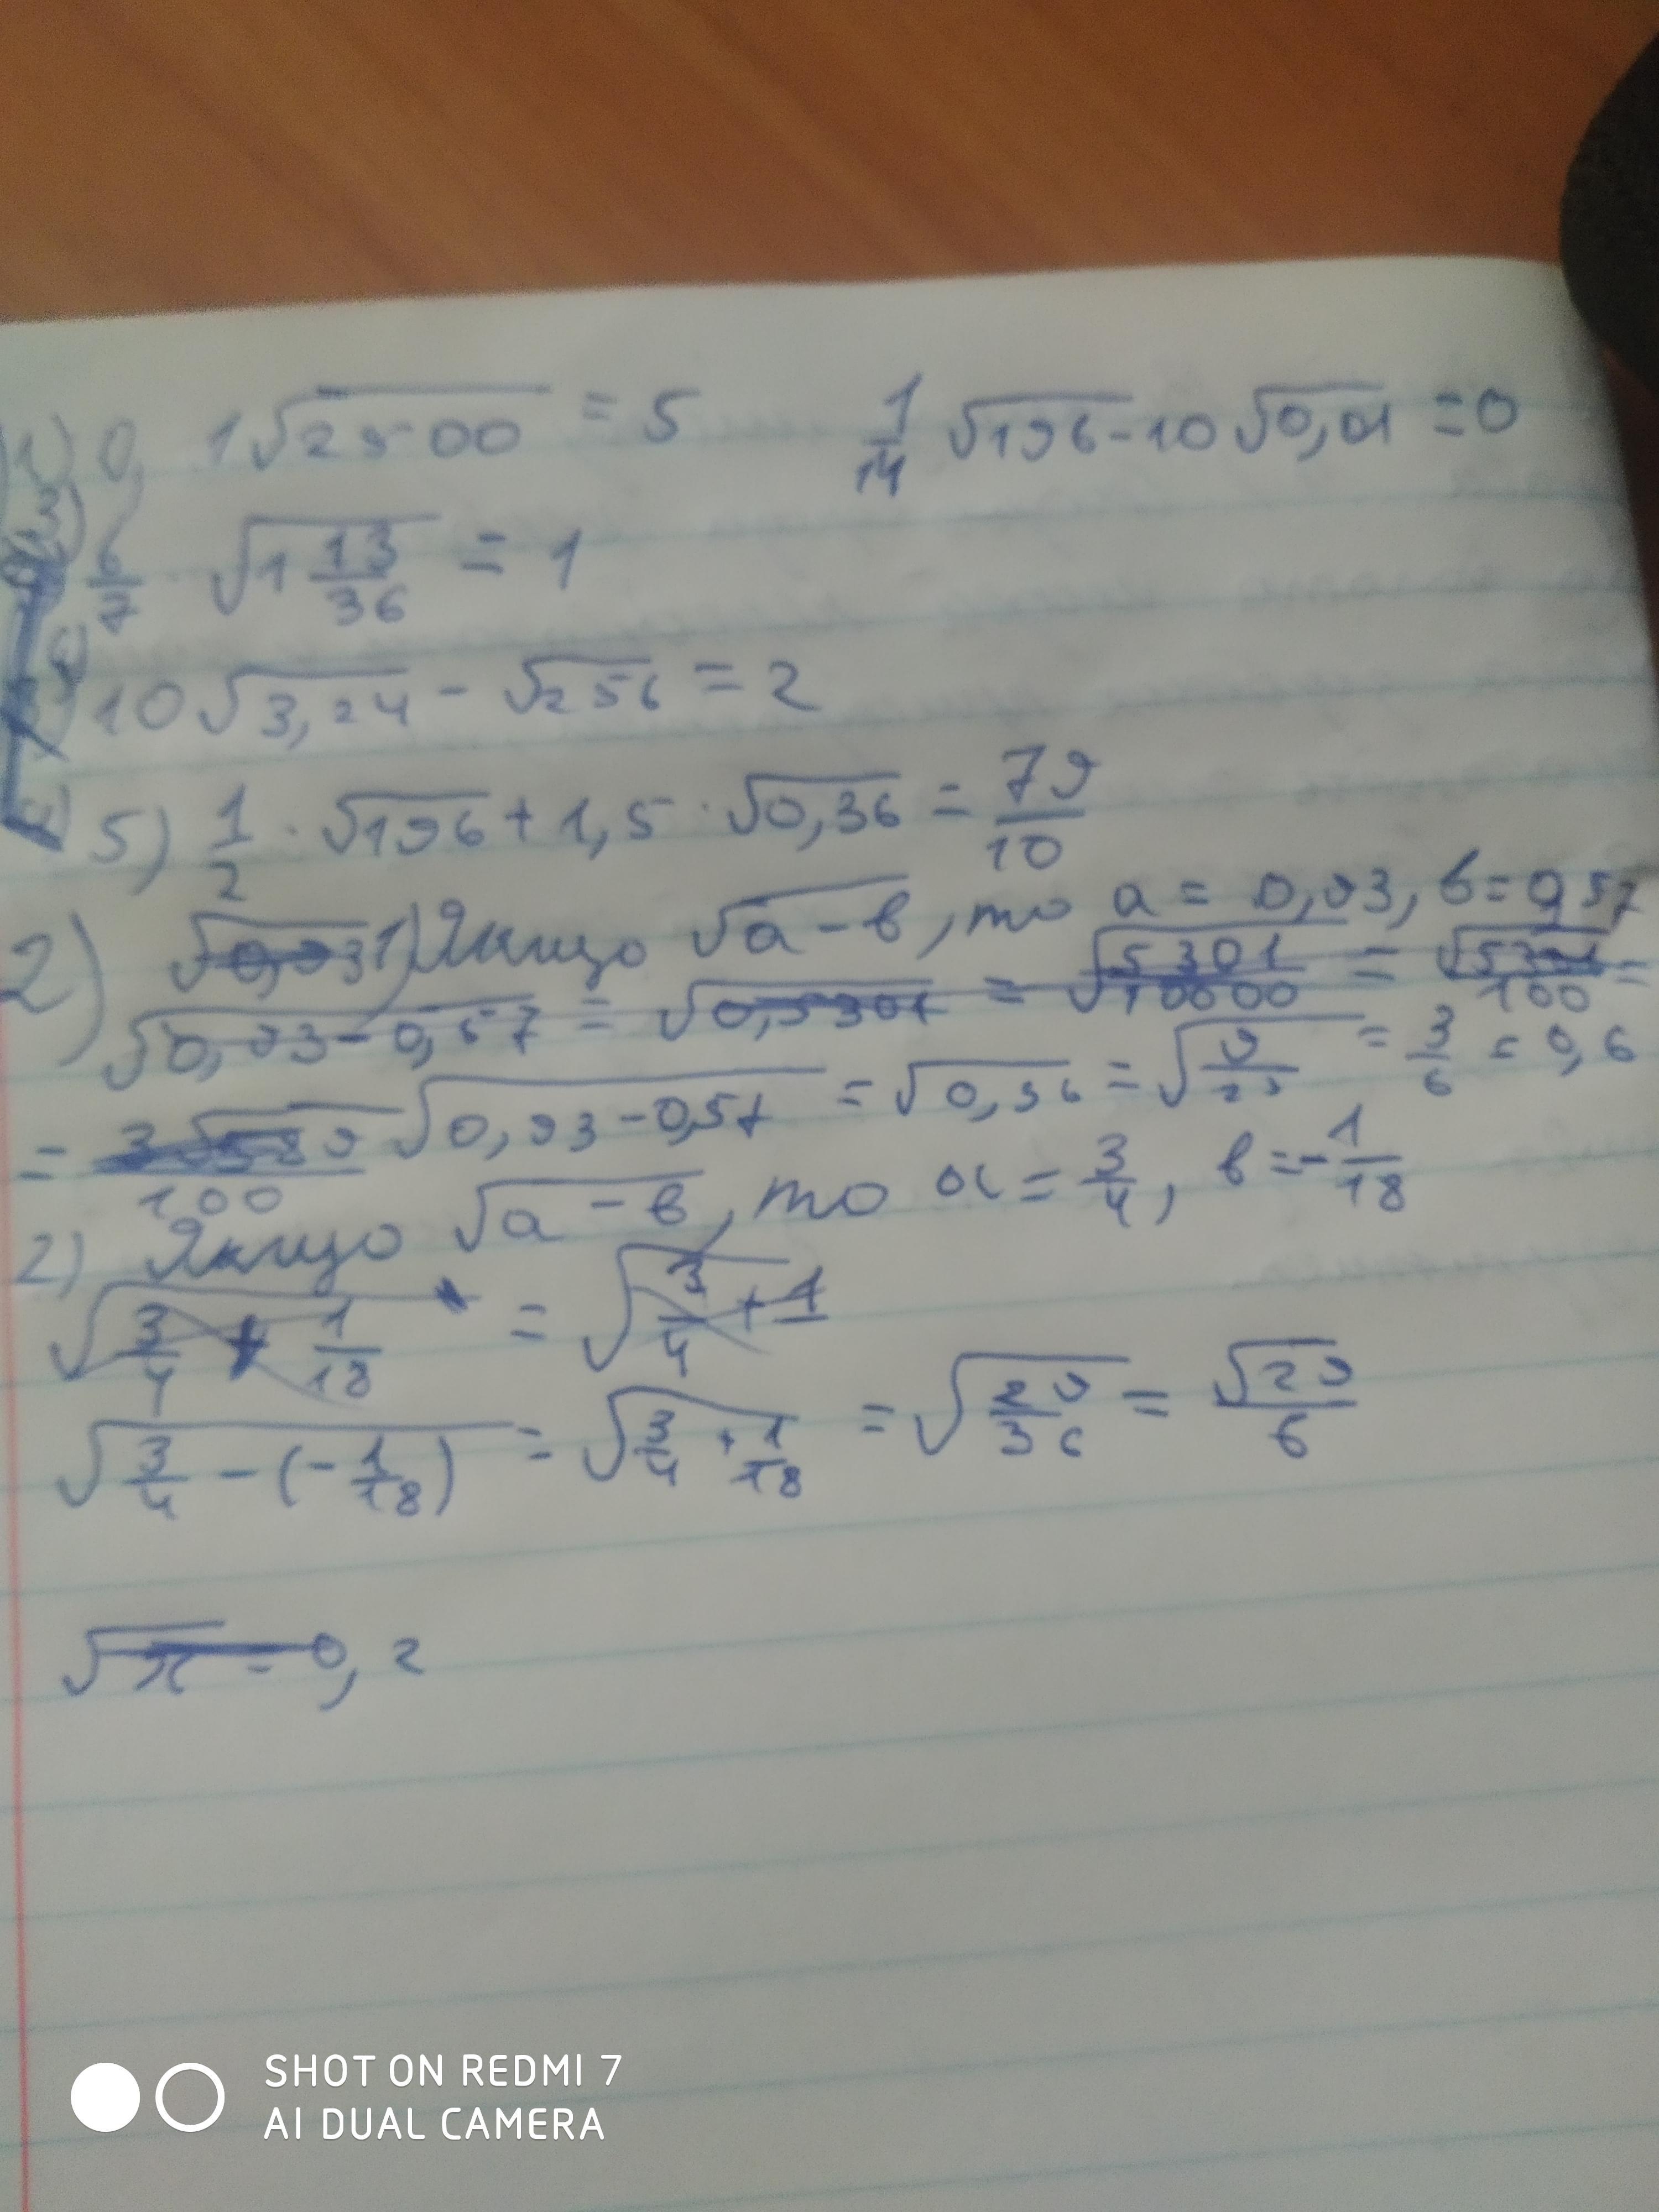 1) 0,1√2500 = 5 1/14 √196 - 10√0,01 = 0
3) 6/7 · √1 13/36 = 1
4) 10√3,24 - √256 = 2
5) 1/2 · √196 + 1,5 · √0,36 = 79/10
2) 1) Якщо √a-b, то a = 0,93, b = 0,57
√0,93-0,57 = √0,5301 = √5301/10000 = √5301/100 =
= /100 √0,93-0,57 = √0,36 = √9/25 = 3/6 = 0,6
2) Якщо √a-b, то a = 3/4, b = -1/18
√3/4 + 1/18 = √3/4 + 1
√3/4 - (-1/18) = √3/4 + 1/18 = √29/36 = √29/6
√x = 0,2
SHOT ON REDMI 7
AI DUAL CAMERA